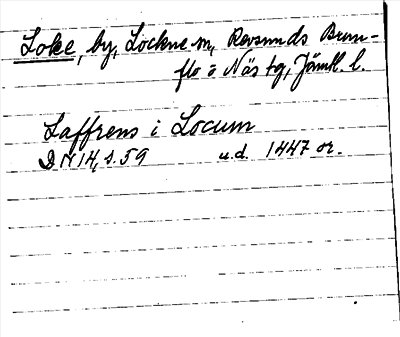 Loke, by, Lockne sn, Revsunds Brun-
flo o Näs tg, Jämtl. l.
Laffrens i Locum
DN 14, s. 59 u.d. 1447 or.